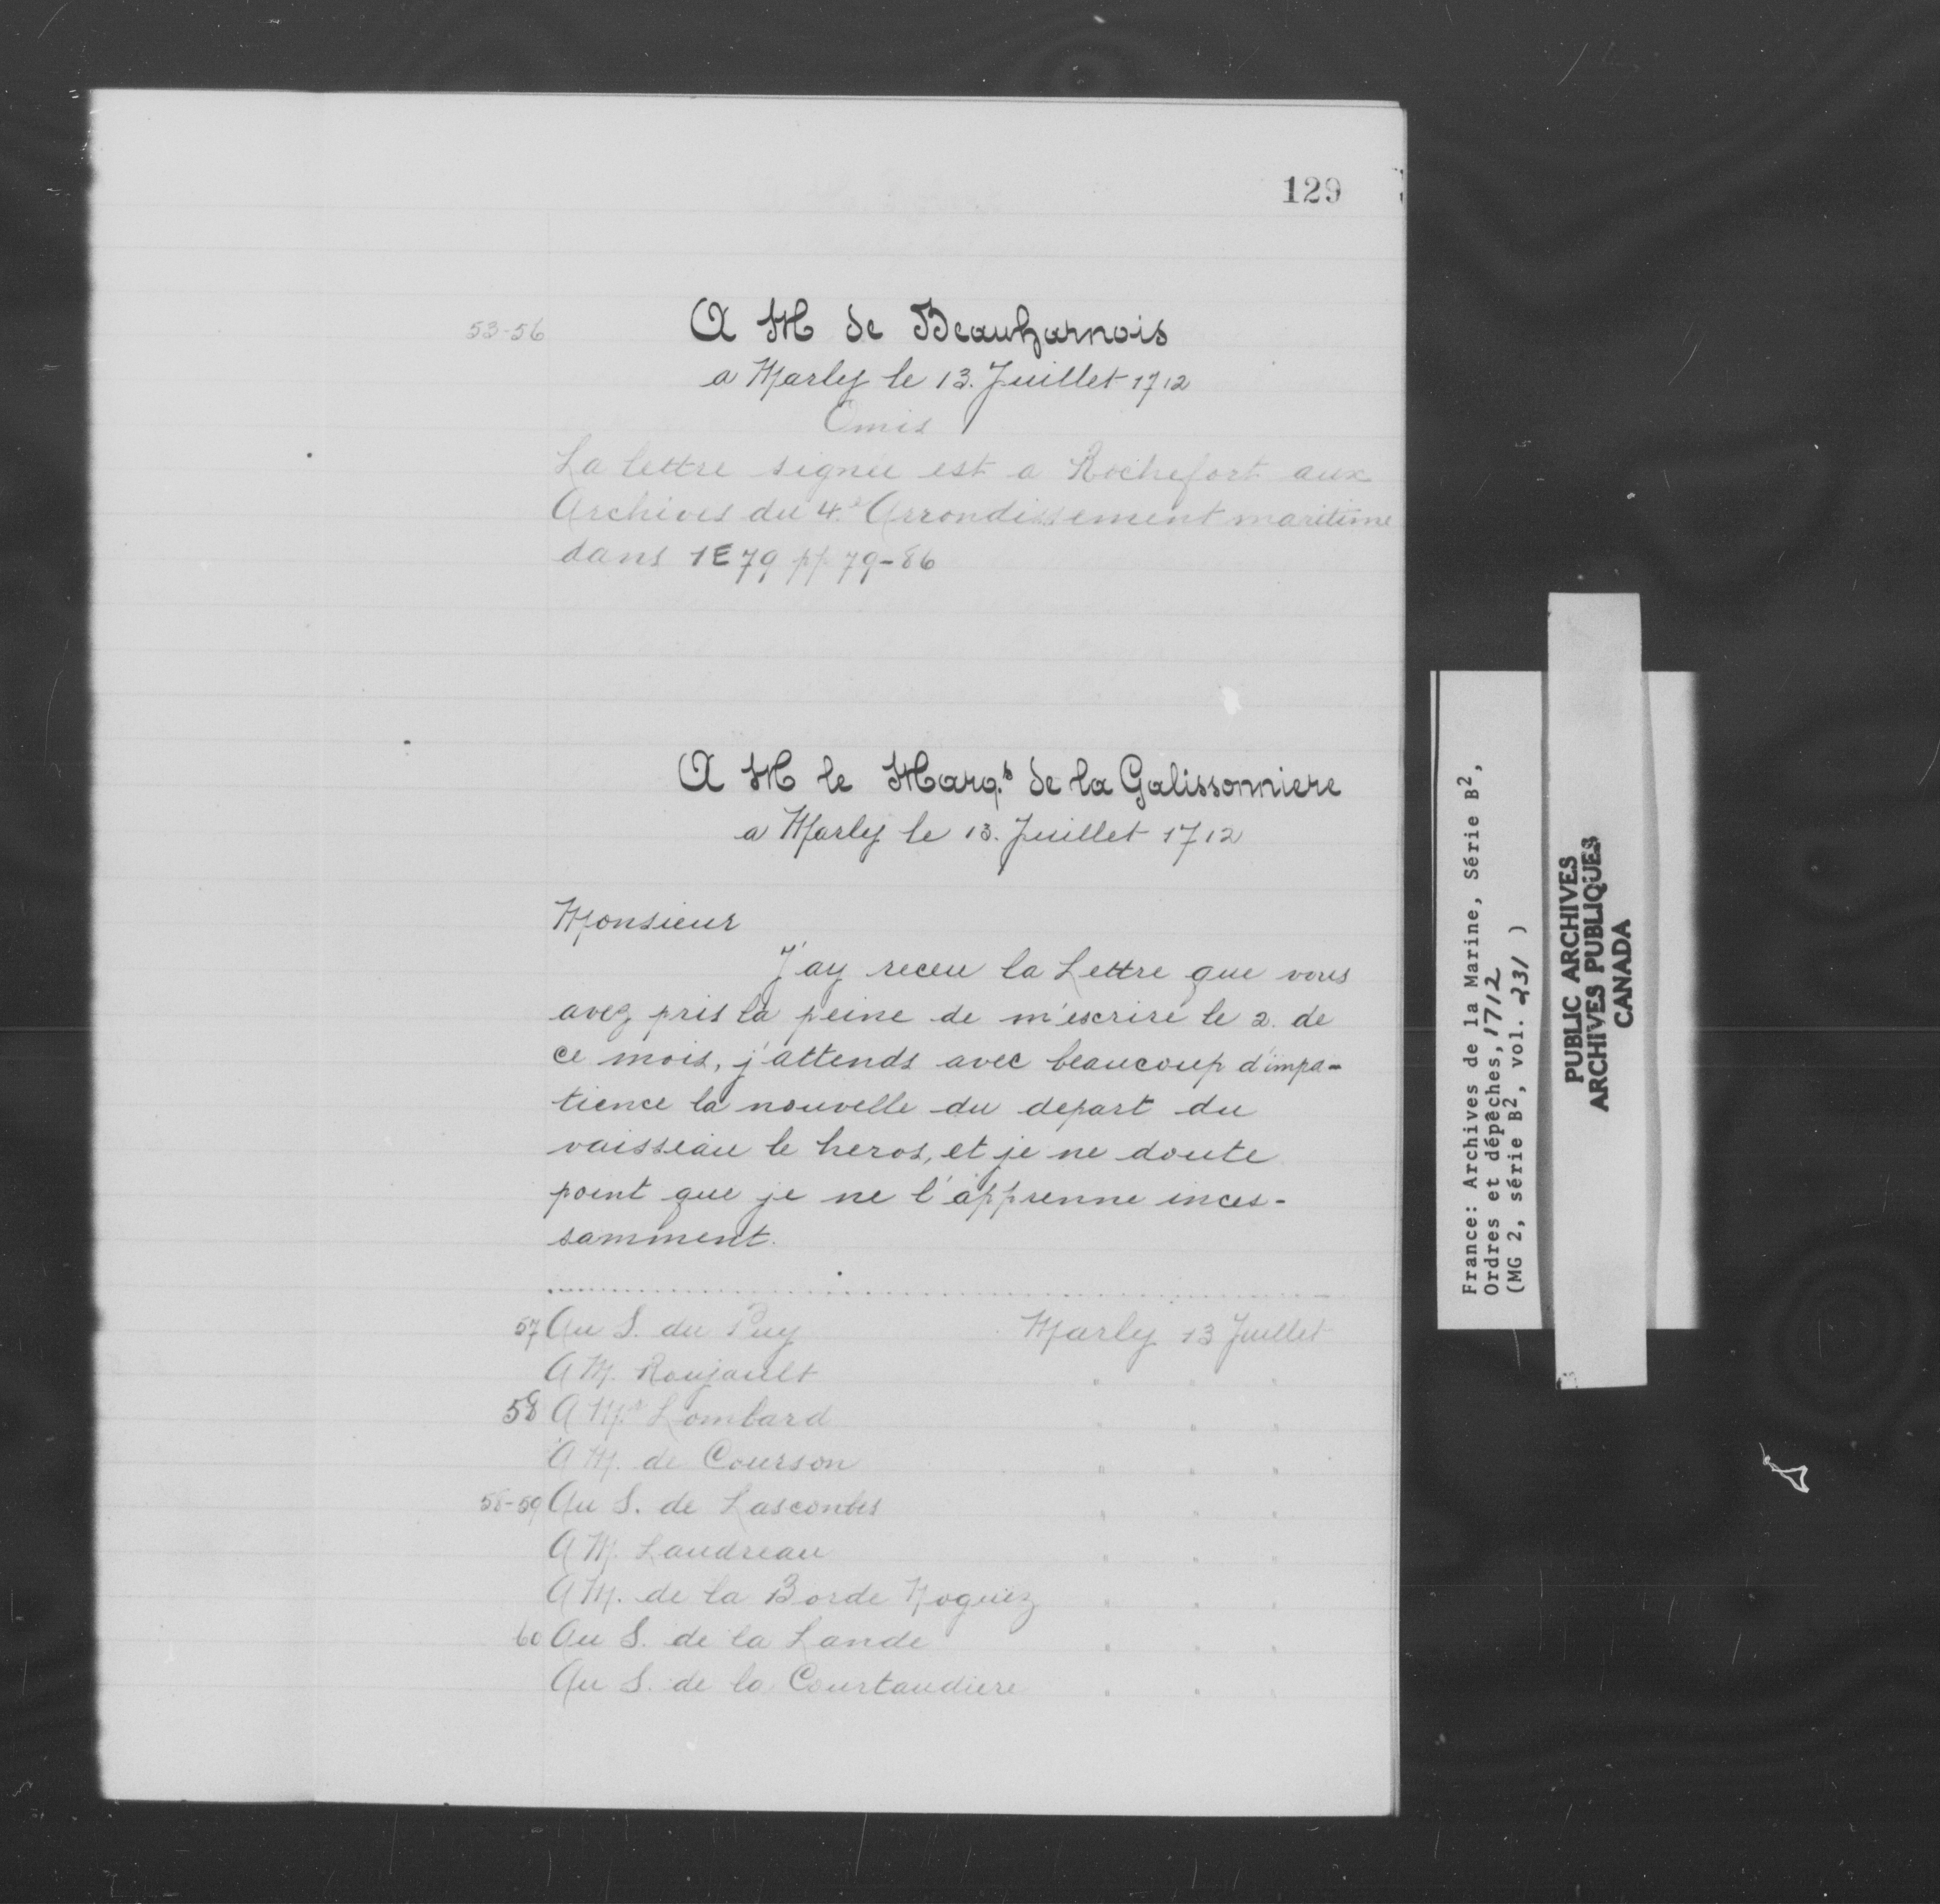 129
53-56 A M de Beauharnois
a Marly le 13. Juillet 1712
Omis
La lettre signée est a Rochefort aux
Archives du 4e Arrondissement maritime
dans 1E 79 pp 79-86
A M le Marq.s de la Galissonniere
a Marly le 13. Juillet 1712
Monsieur
J'ay receu la Lettre que vous
avez pris la peine de m'escrire le 2. de
ce mois, j'attends avec beaucoup d'impa-
tience la nouvelle du depart du
vaisseau le heros, et je ne doute
point que je ne l'apprenne inces-
samment.
57 Au S. du Puy Marly 13 Juillet
A M. Roujault " " "
58 A M.r Lombard " " "
A M. de Courson " " "
58-59 Au S. de Lascombes " " "
A M. Landreau " " "
A M. de la Borde Noguez " " "
60 Au S. de la Lande " " "
Au S. de la Courtaudiere " " "
France: Archives de la Marine, Série B2,
Ordres et dépêches, 1712
(MG 2, série B2, vol. 231 )
PUBLIC ARCHIVES
ARCHIVES PUBLIQUES
CANADA